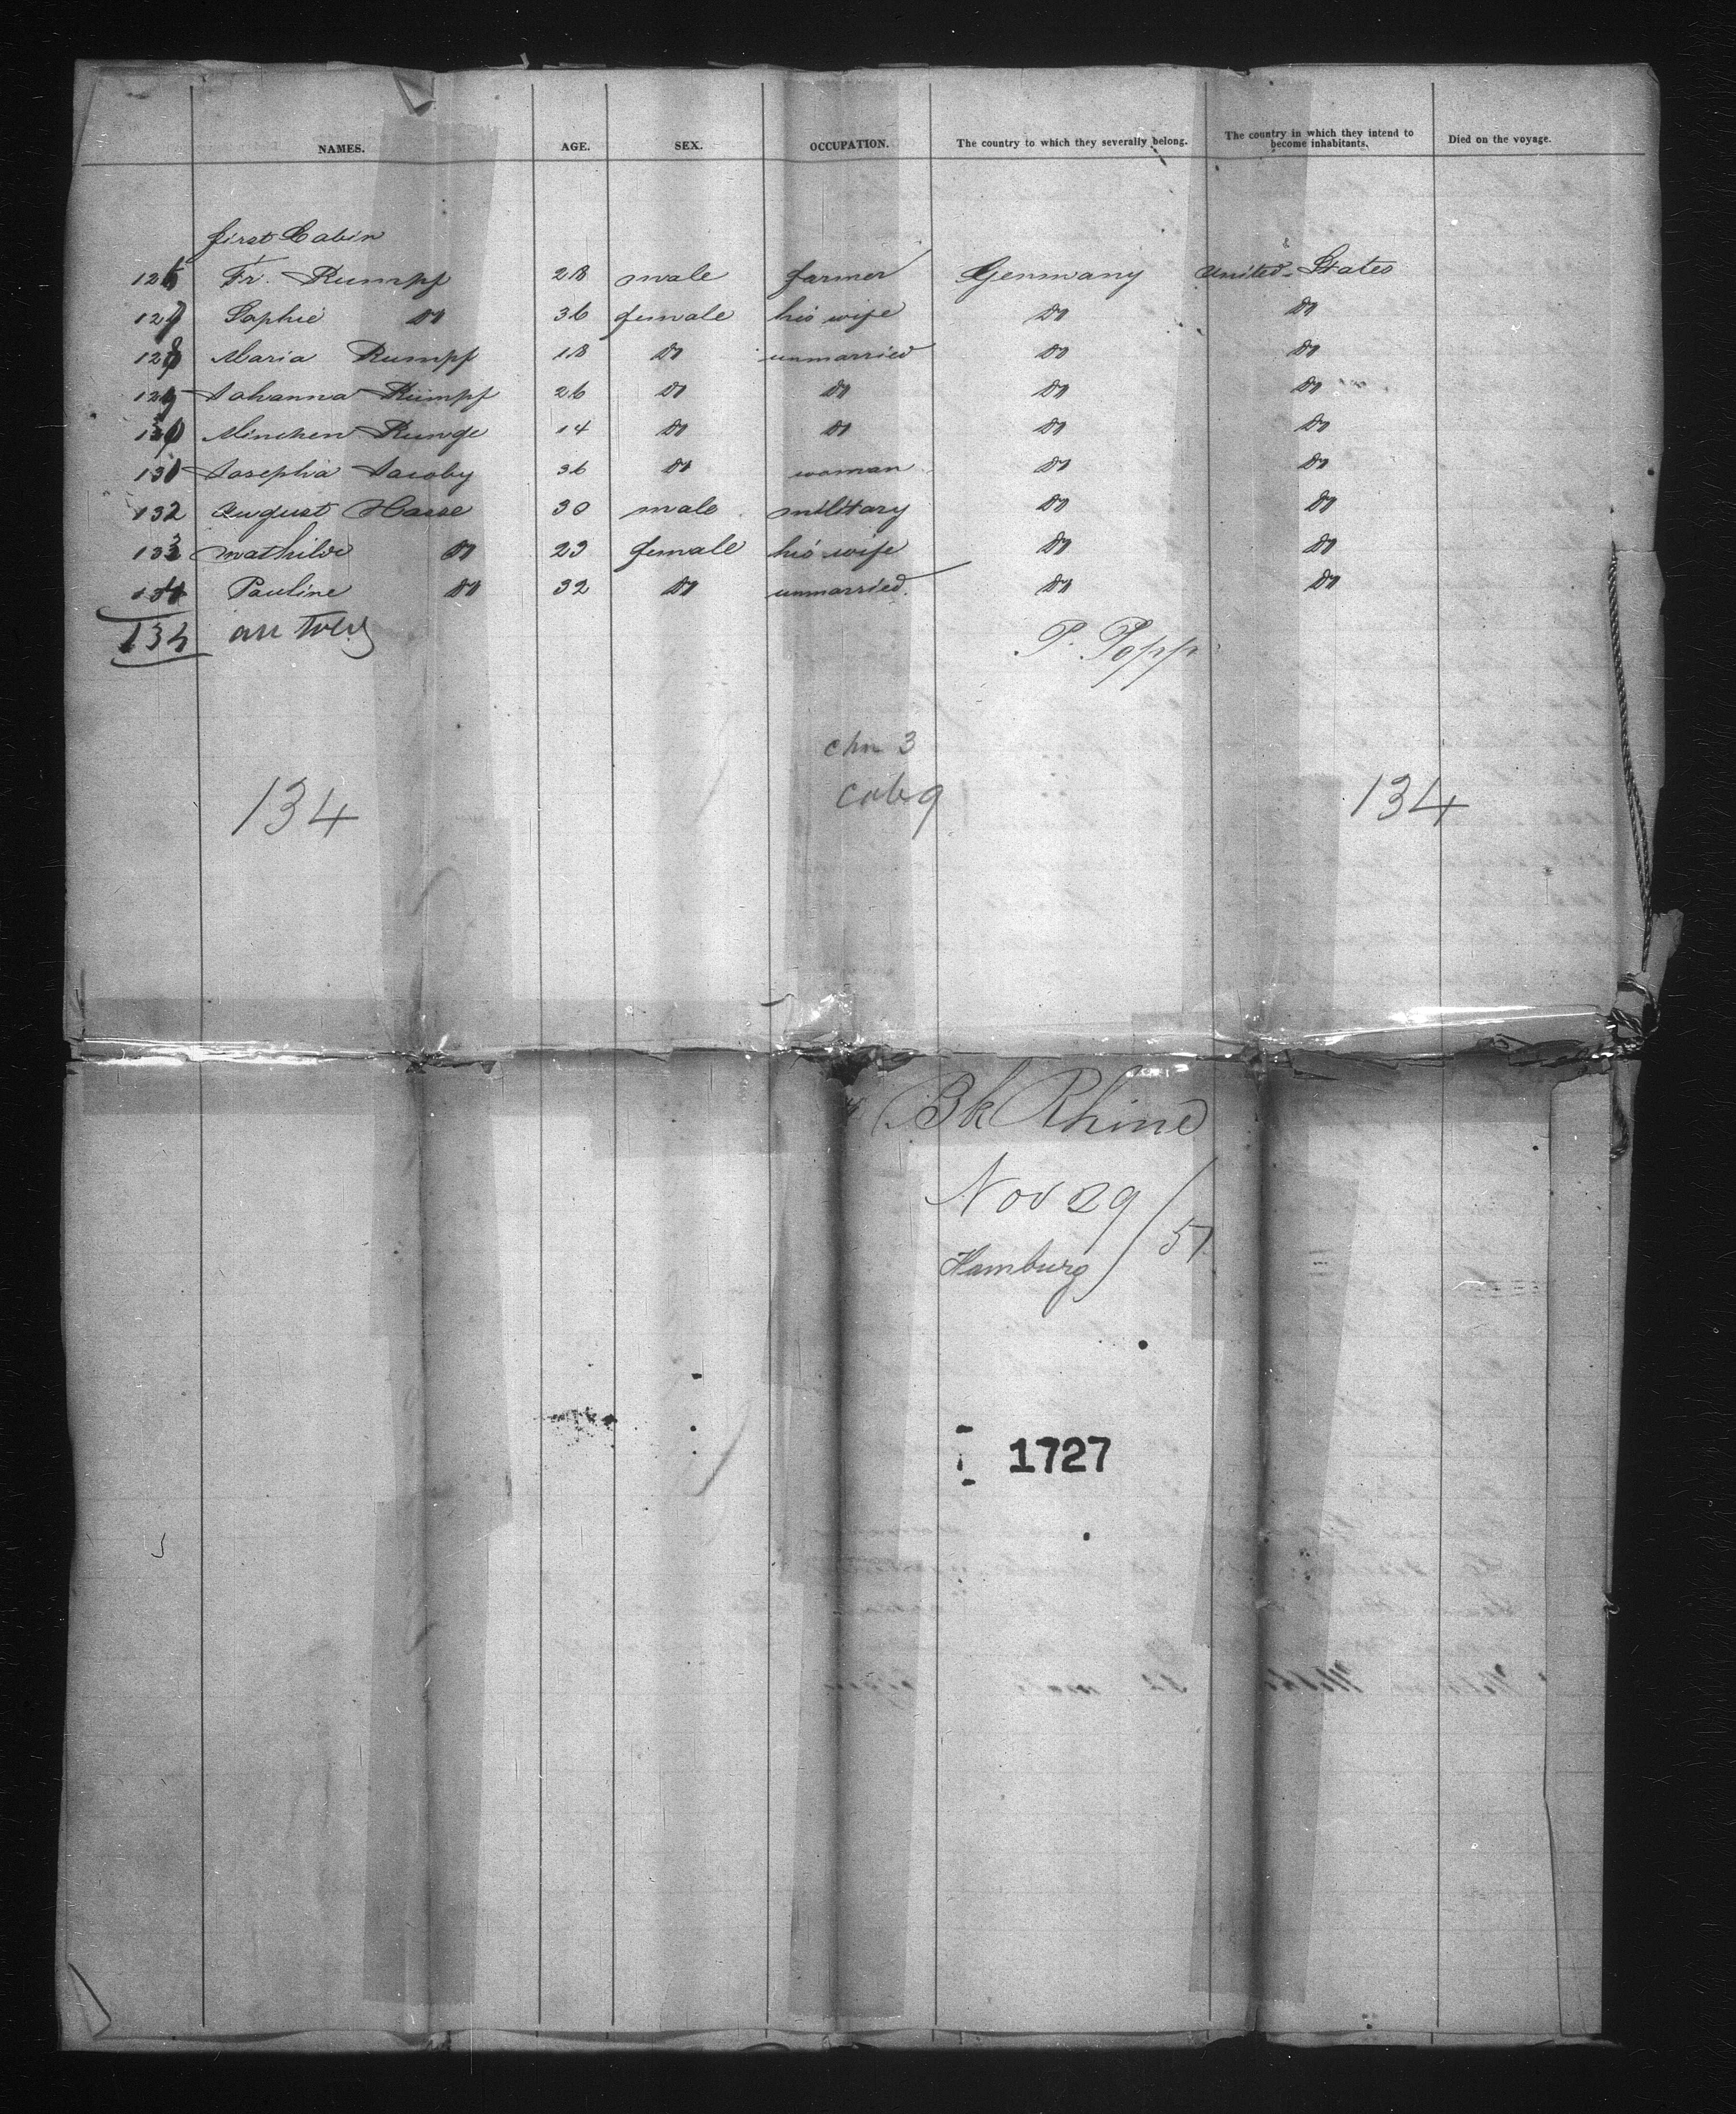 NAMES. AGE. SEX. OCCUPATION. The country to which they severally belong. The country in which they intend to become inhabitants. Died on the voyage.
first Cabin
126 Fr. Rumpf 28 male farmer Germany United States
127 Sophie Do 36 female his wife Do Do
128 Maria Rumpf 18 Do unmarried Do Do
129 Johanna Rumpf 26 Do Do Do Do
130 Minchen Runge 14 Do Do Do Do
131 Josepha Jacoby 36 Do woman Do Do
132 August Hasse 30 male military Do Do
133 Mathilde Do 23 female his wife Do Do
134 Pauline Do 32 Do unmarried. Do Do
134
P. Popp
chn 3
134 cab 9 134
Bk Rhine
Nov 29 / 51
Hamburg
1727